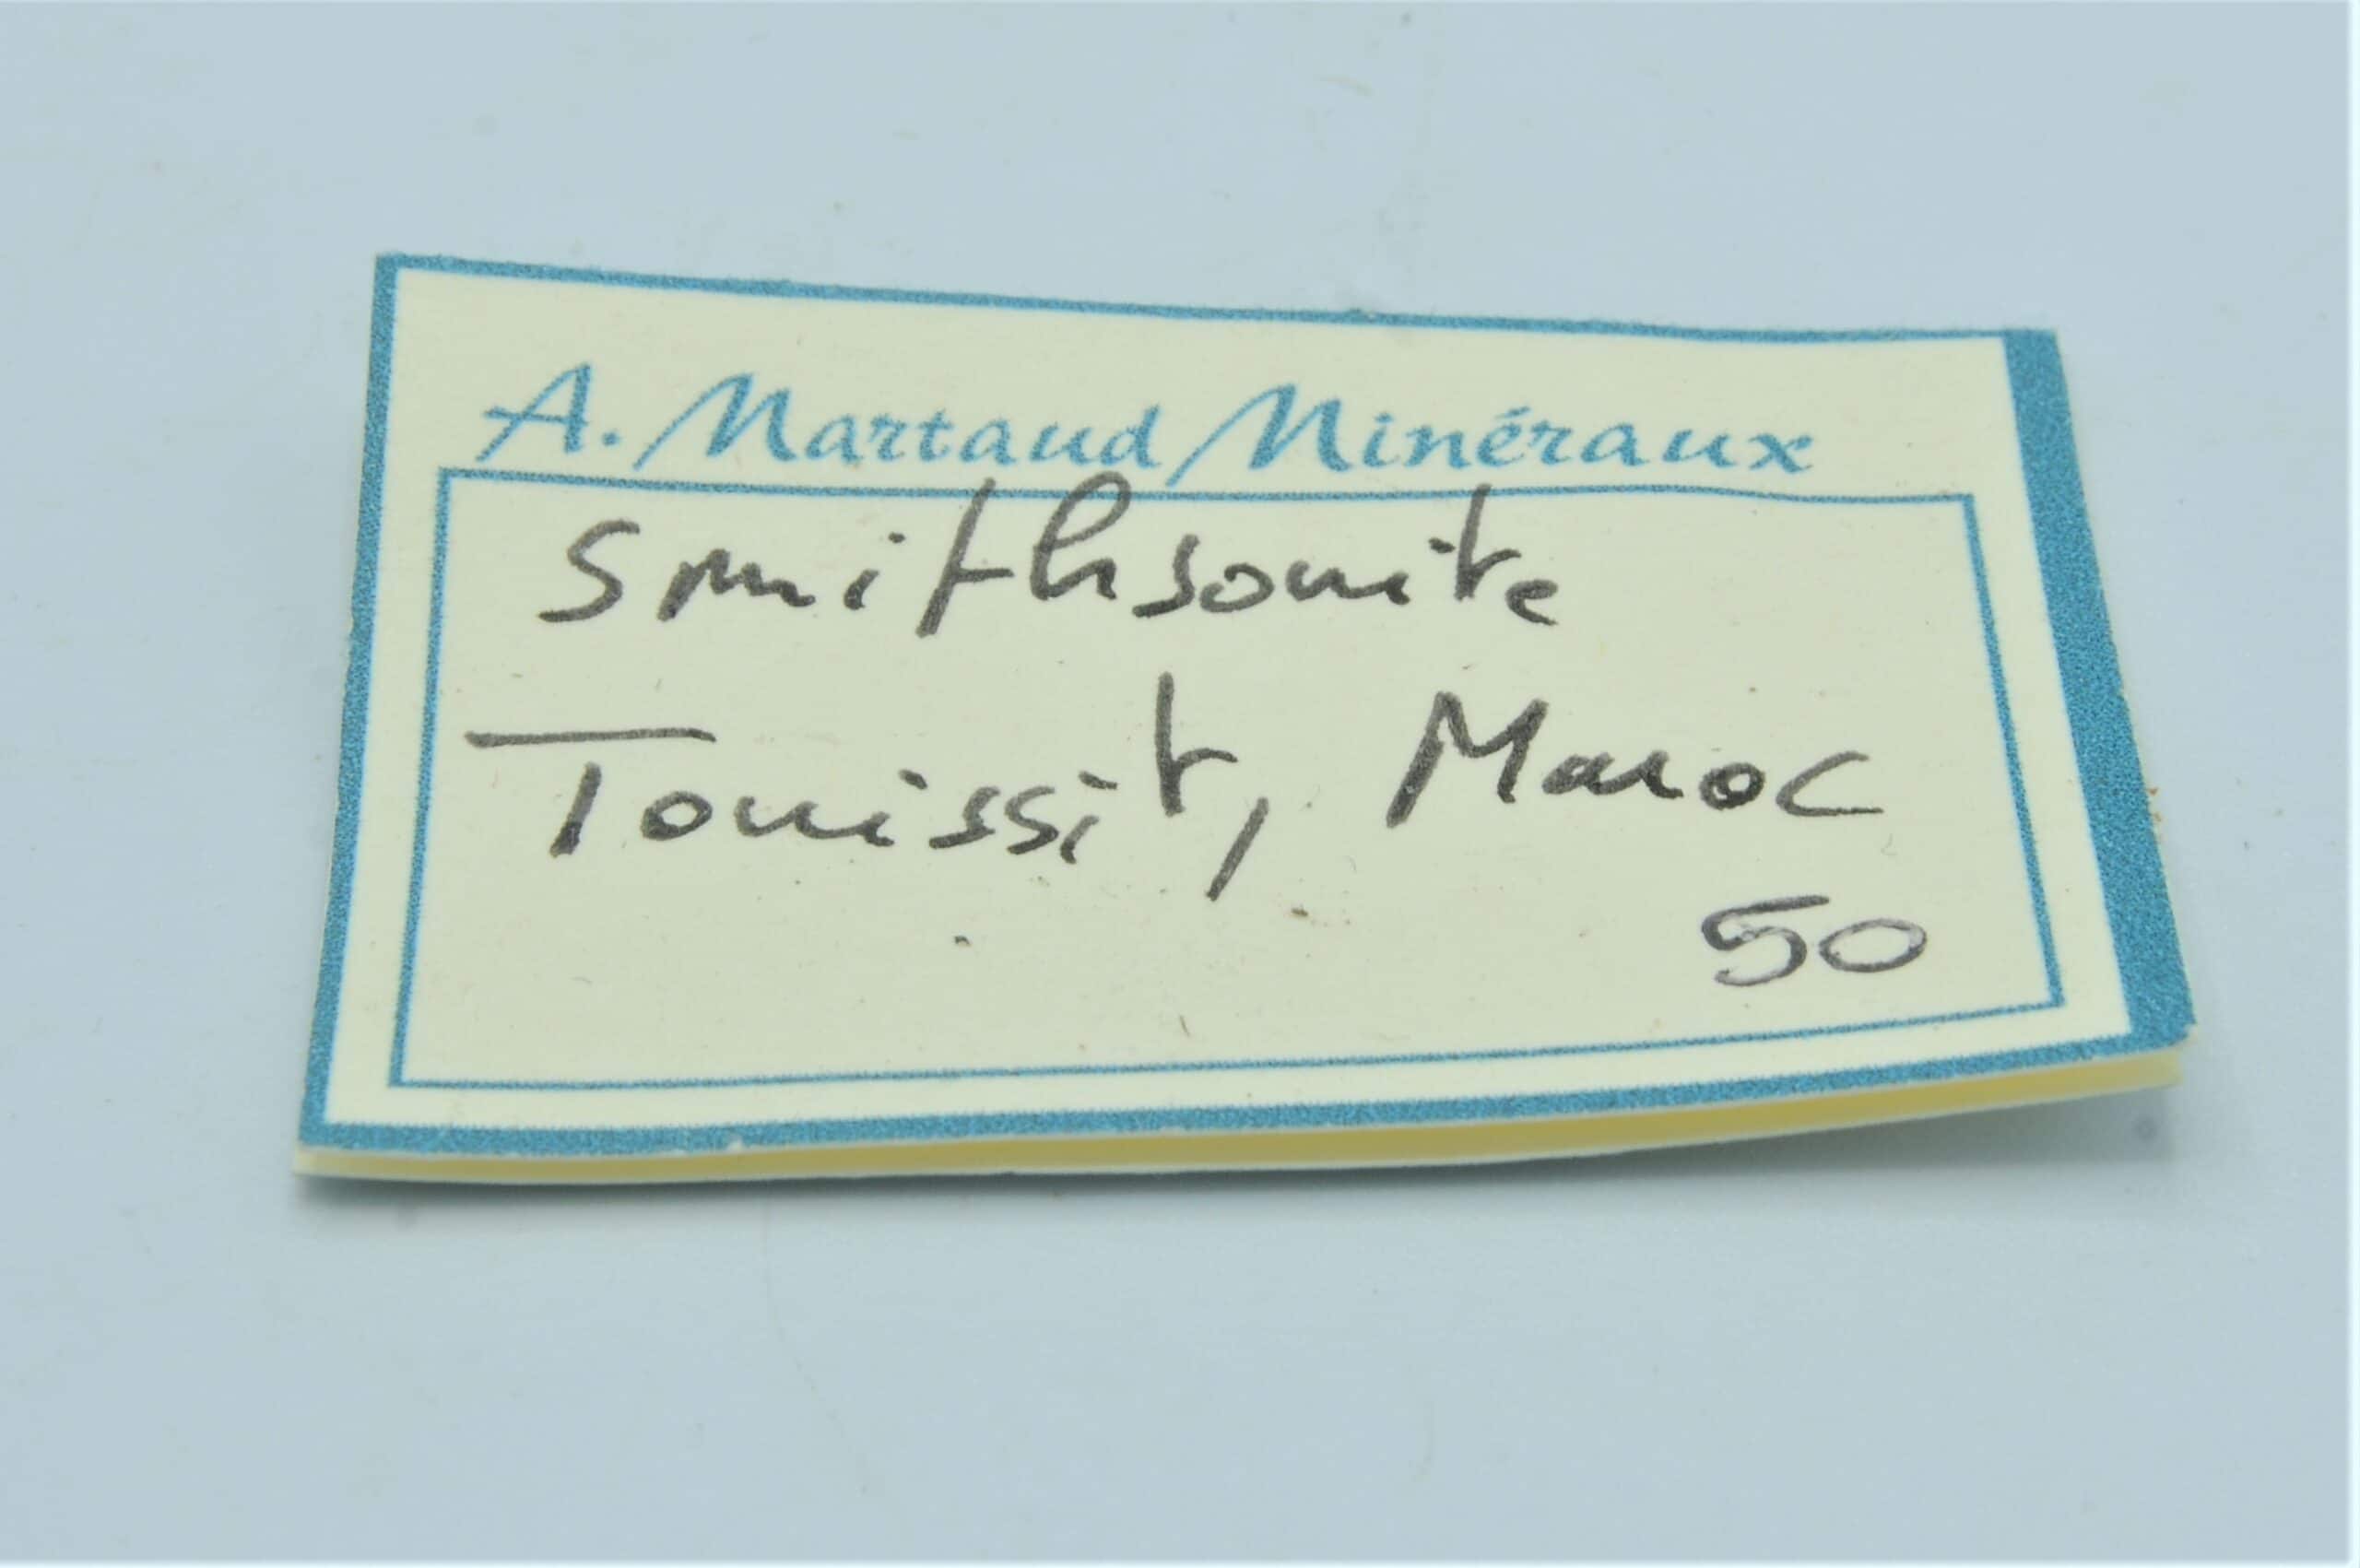 A. Martaud Minéraux
Smithsonite
Touissit, Maroc
50